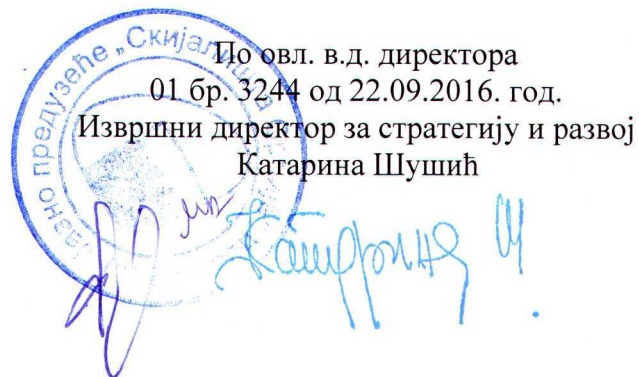 По овл. в.д. директора
01 бр. 3244 од 22.09.2016. год.
Извршни директор за стратегију и развој
Катарина Шушић
предузеће „Скијалишта
Катарина Ш.